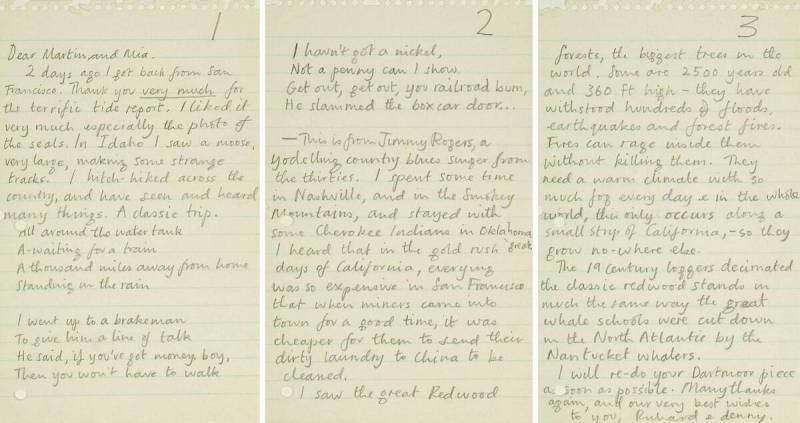 1
Dear Martin, and Mia.
2 days ago I got back from San
Francisco. Thank you very much for
the terrific tide report. I liked it
very much especially the photo of
the seals. In Idaho I saw a moose,
very large, making some strange
tracks. I hitch-hiked across the
country, and have seen and heard
many things. A classic trip.
All around the water tank
A-waiting for a train
A thousand miles away from home
Standing in the rain
I went up to a brakeman
To give him a line of talk
He said, if you've got money boy,
Then you won't have to walk
2
I havn't got a nickel,
Not a penny can I show
Get out, get out, you railroad bum,
He slammed the box car door...
— This is from Jimmy Rogers, a
yodelling country blues singer from
the thirties. I spent some time
in Nashville, and in the Smokey
Mountains, and stayed with
some Cherokee Indians in Oklahoma
I heard that in the gold rush great
days of California, everying
was so expensive in San Francisco
that when miners came into
town for a good time, it was
cheaper for them to send their
dirty laundry to China to be
cleaned.
I saw the great Redwood
3
forests, the biggest trees in the
world. Some are 2500 years old
and 360 ft high - they have
withstood hundreds of floods,
earthquakes and forest fires.
Fires can rage inside them
without killing them. They
need a warm climate with so
much fog every day & in the whole
world, this only occurs along a
small strip of California, - so they
grow no-where else.
The 19 Century loggers decimated
the classic redwood stands in
much the same way the great
whale schools were cut down
in the North Atlantic by the
Nantucket whalers.
I will re-do your Dartmoor piece
as soon as possible. Many thanks
again, and our very best wishes
to you, Richard & denny.